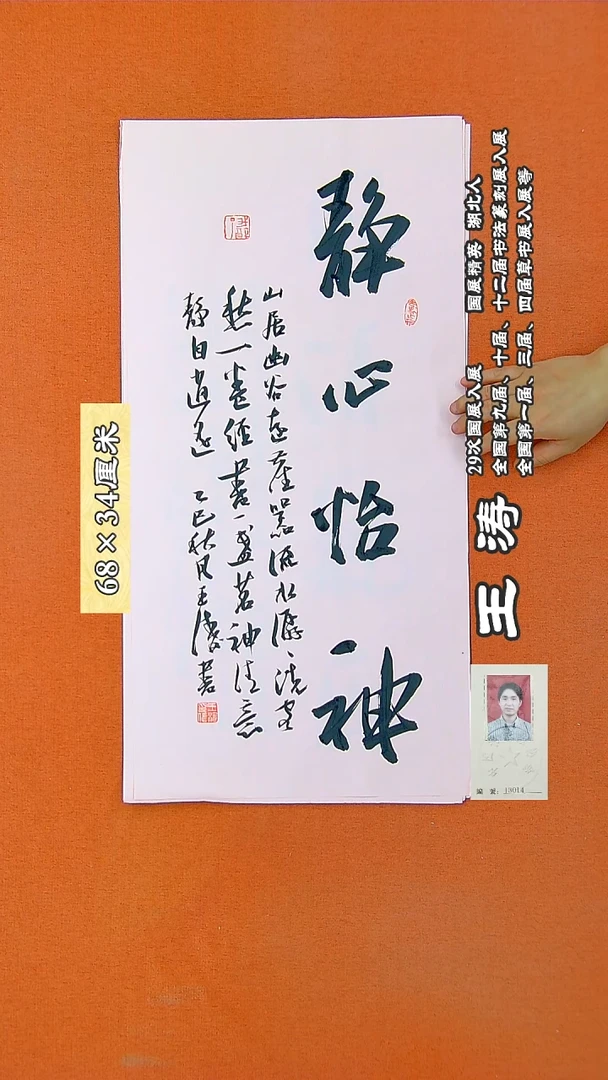 静心怡神
山居幽谷远尘嚣流水潺潺洗客
愁一卷经书一盏茗神清意
静自逍遥 乙巳秋月王涛书
68×34厘米
王涛
29次国展入展 国展精英 湖北人
全国第九届、十届、十二届书法篆刻展入展
全国第一届、三届、四届草书展入展等